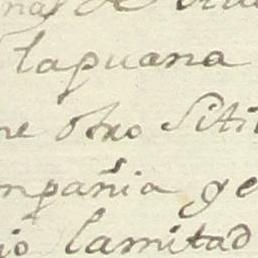 de
tapuana
otro Siti
mpañia ge
io lamitad